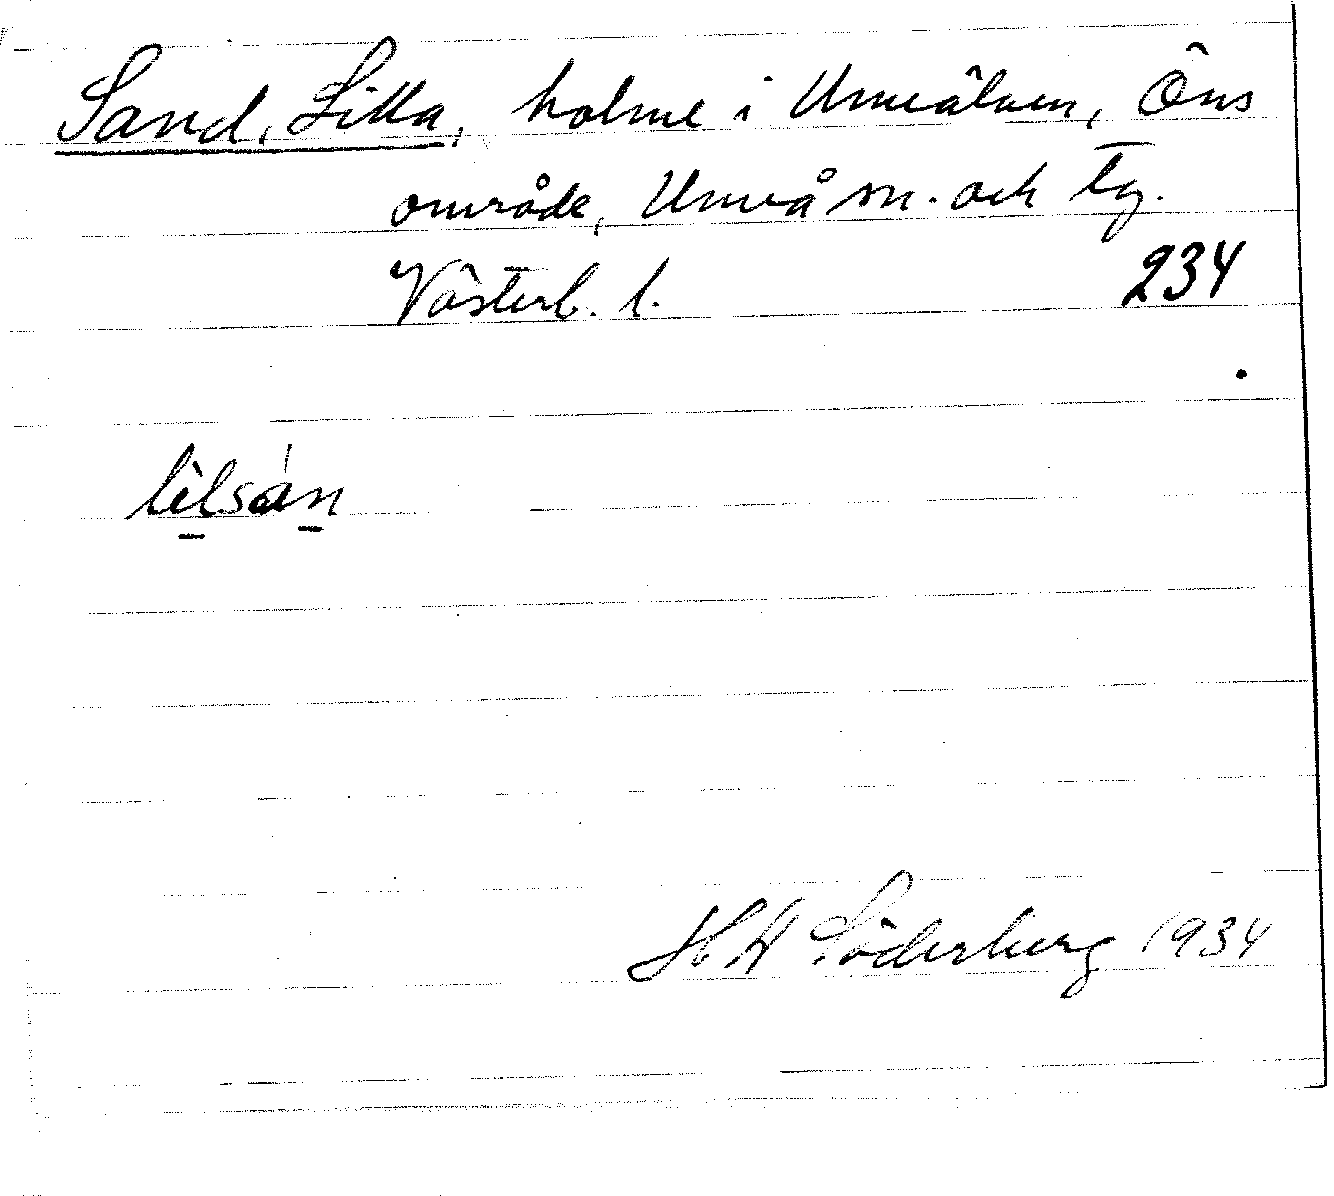 Sand, Lilla, holme i Umeälven, Öns
område, Umeå sn. och tg.
Västerb. l.
234
lìlsán
H H Söderberg 1934